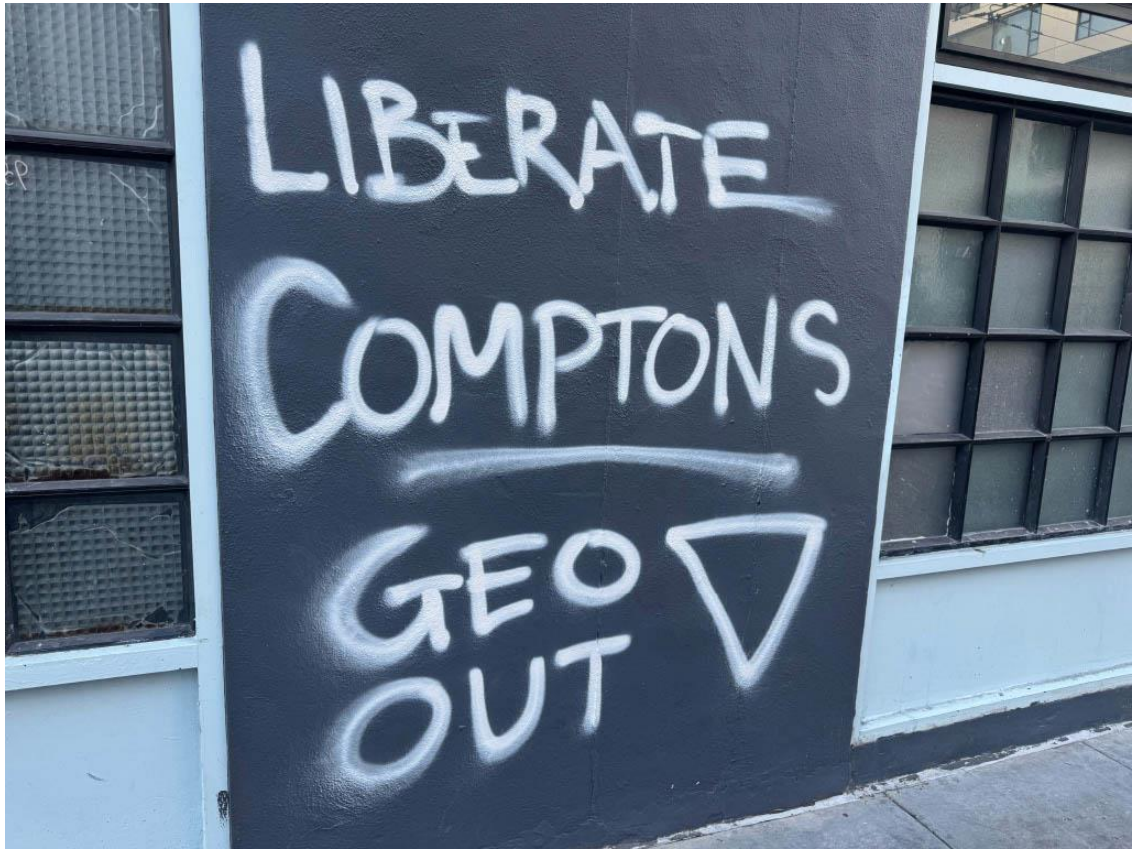 LIBERATE
COMPTONS
GEO
OUT